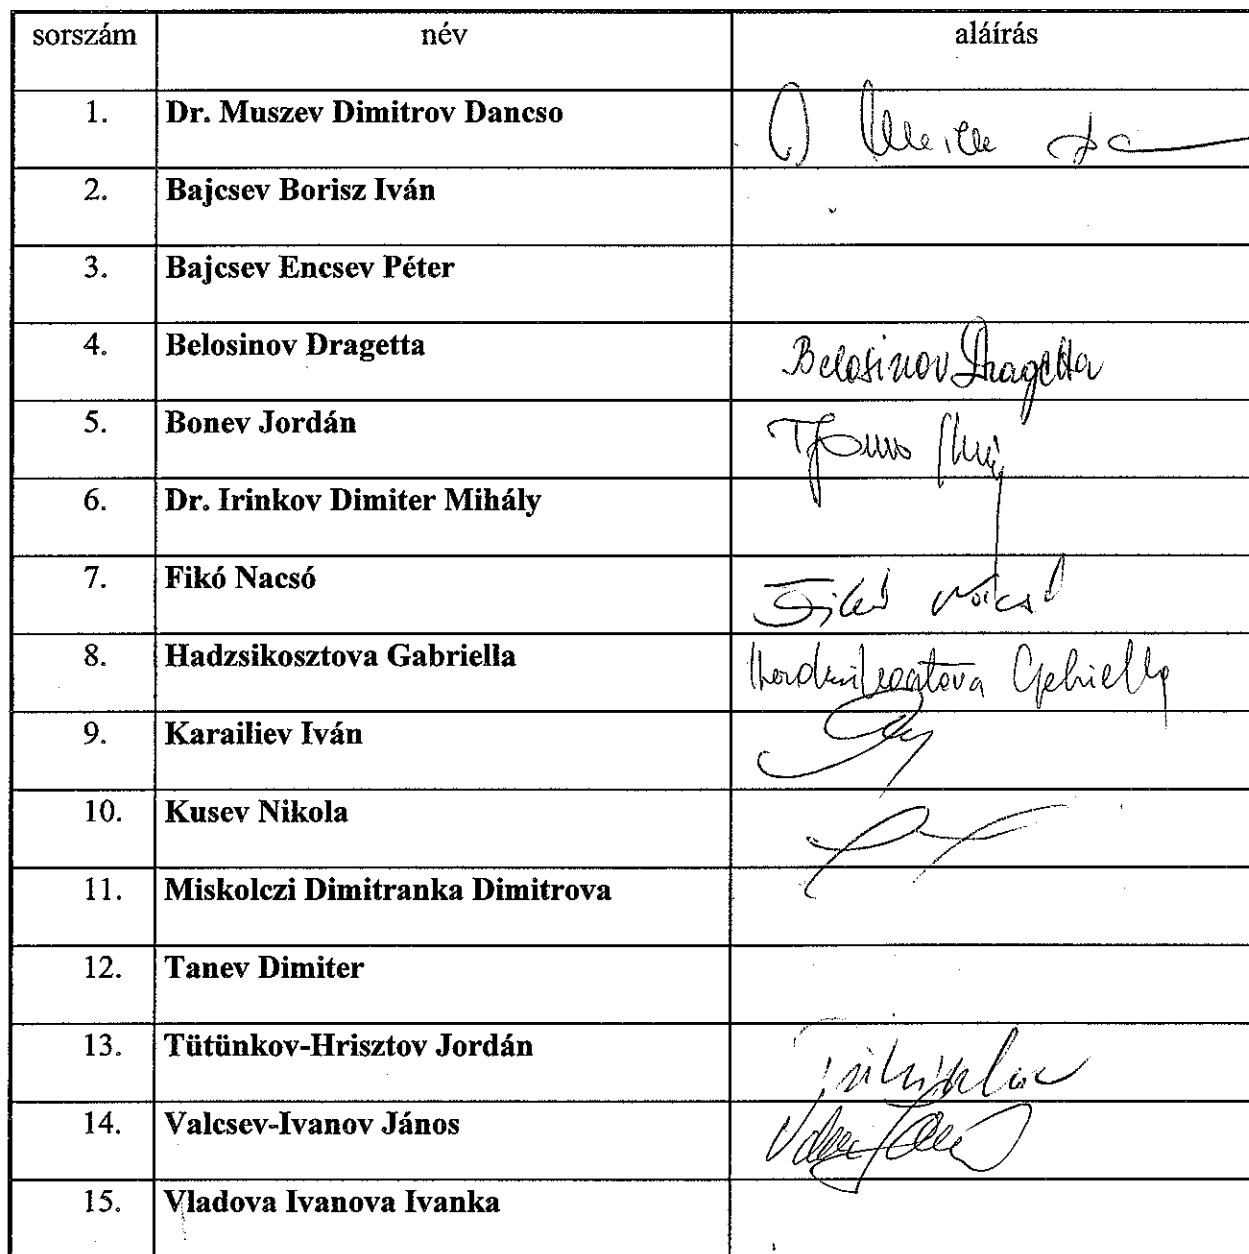 sorszám név aláírás
1. Dr. Muszev Dimitrov Dancso
2. Bajcsev Borisz Iván
3. Bajcsev Encsev Péter
4. Belosinov Dragetta Belosinov Dragetta
5. Bonev Jordán
6. Dr. Irinkov Dimiter Mihály
7. Fikó Nacsó Fikó Nácsó
8. Hadzsikosztova Gabriella Hadzsikosztova Gabriella
9. Karailiev Iván
10. Kusev Nikola
11. Miskolczi Dimitranka Dimitrova
12. Tanev Dimiter
13. Tütünkov-Hrisztov Jordán
14. Valcsev-Ivanov János
15. Vladova Ivanova Ivanka